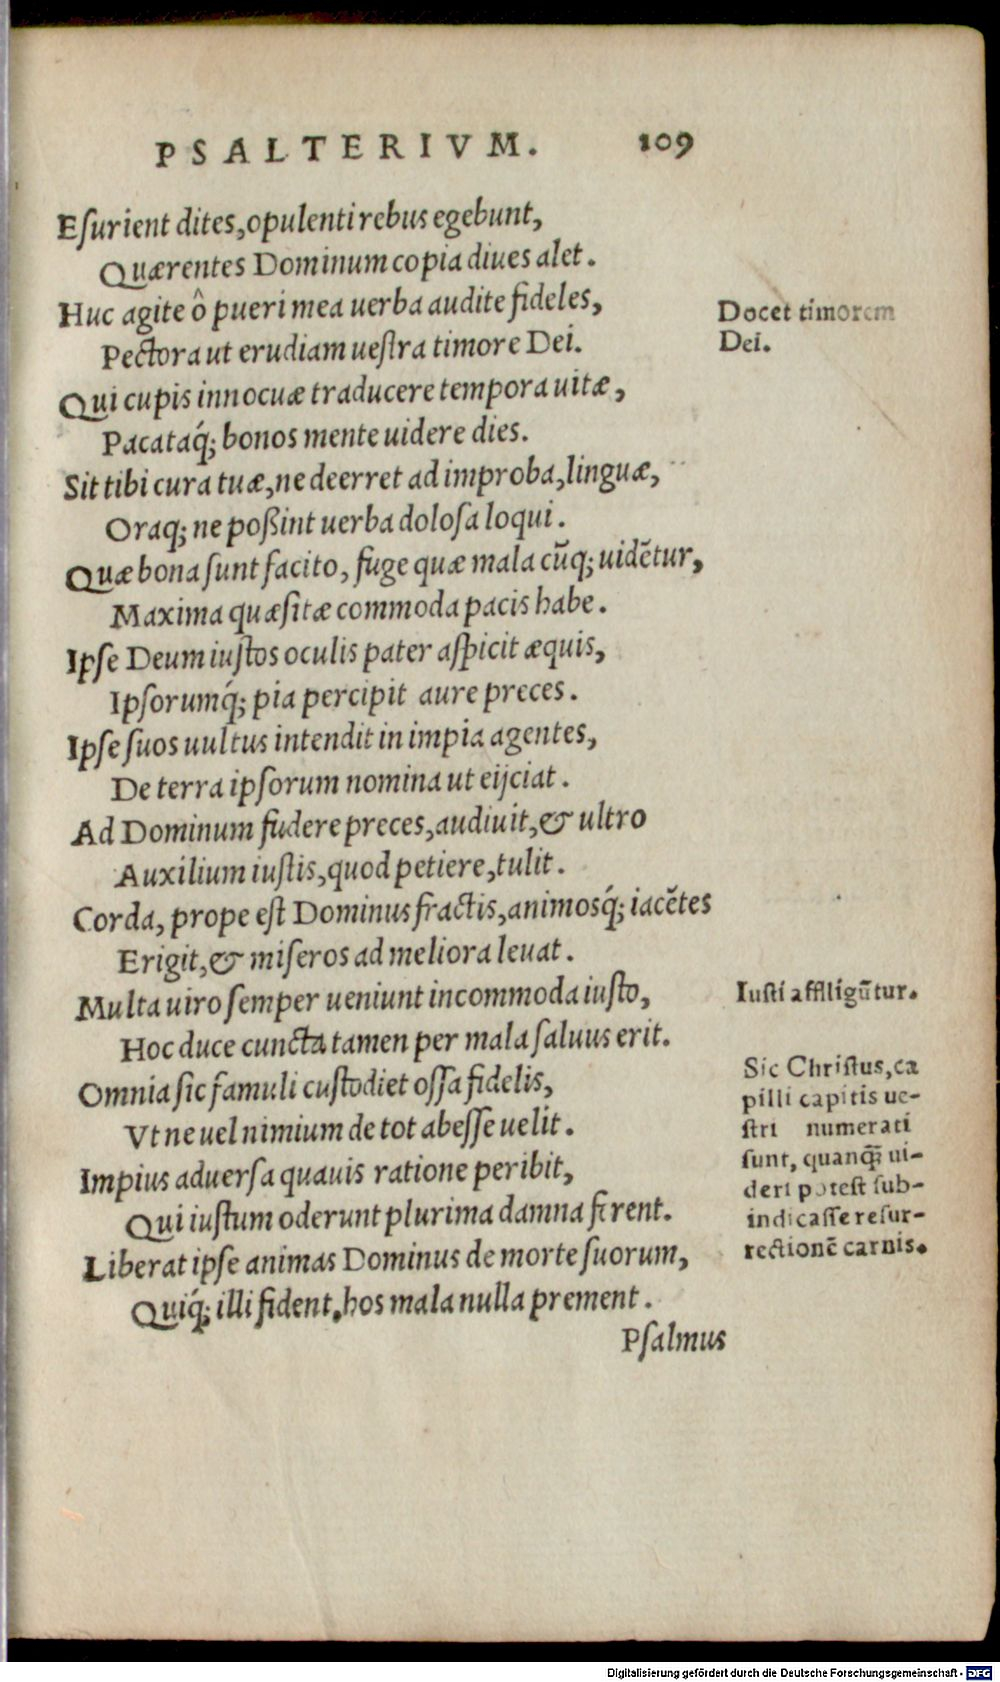 PSALTERIVM. 109
Eſurient dites, opulenti rebus egebunt,
Quærentes Dominum copia diues alet.
Huc agite ô pueri mea uerba audite fideles,
Pectora ut erudiam ueſtra timore Dei.
Qui cupis innocuæ traducere tempora uitæ,
Pacataq́; bonos mente uidere dies.
Sit tibi cura tuæ, ne deerret ad improba, linguæ,
Oraq; ne poßint uerba doloſa loqui.
Quæ bona ſunt facito, fuge quæ mala cũq; uidẽtur,
Maxima quæſitæ commoda pacis habe.
Ipſe Deum iuſtos oculis pater aſpicit æquis,
Ipſorumq́; pia percipit aure preces.
Ipſe ſuos uultus intendit in impia agentes,
De terra ipſorum nomina ut eijciat.
Ad Dominum fudere preces, audiuit, & ultro
Auxilium iuſtis, quod petiere, tulit.
Corda, prope eſt Dominus fractis, animosq́; iacẽtes
Erigit, & miſeros ad meliora leuat.
Multa uiro ſemper ueniunt incommoda iuſto,
Hoc duce cuncta tamen per mala ſaluus erit.
Omnia ſic famuli cuſtodiet oſſa fidelis,
Vt ne uel nimium de tot abeſſe uelit.
Impius aduerſa quauis ratione peribit,
Qui iuſtum oderunt plurima damna ferent.
Liberat ipſe animas Dominus de morte ſuorum,
Quiq́; illi fident, hos mala nulla prement.
Pſalmus
Docet timorem
Dei.
Iuſti affligũtur.
Sic Chriſtus, ca
pilli capitis ue-
ſtri numerati
ſunt, quanq̃; ui-
deri poteſt ſub-
indicaſſe reſur-
rectionẽ carnis.
Digitalisierung gefördert durch die Deutsche Forschungsgemeinschaft - DFG